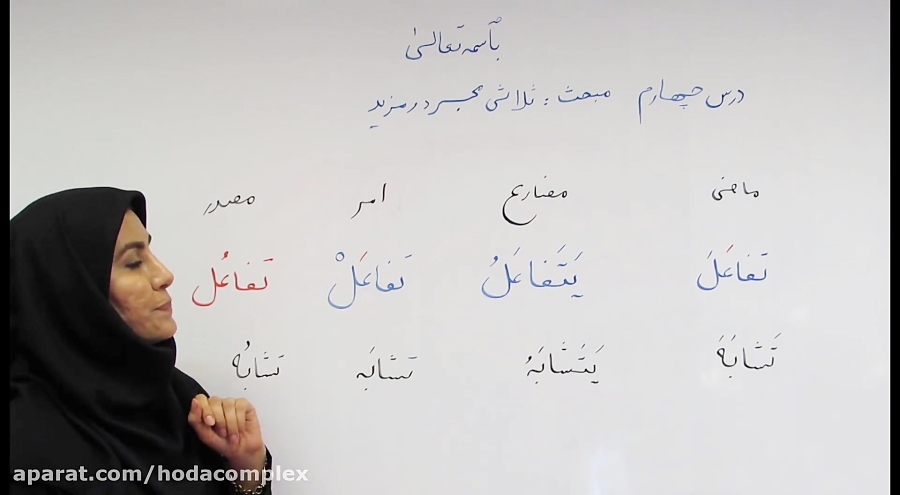 بأسمه تعالیٰ
درس چهارم مبحث : ثلاثی مجرد و مزید
ماضی مضارع امر مصدر
تَفاعَلَ یَتَفاعَلُ تَفاعَلْ تَفاعُل
تَشابَهَ یَتَشابَهُ تَشابَه تَشابُه
aparat.com/hodacomplex